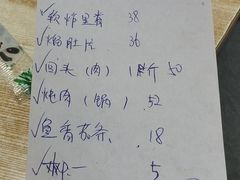 ✓软炸里脊 38
✓焰肚片 36
✓回头(肉) 1斤 50
✓炖肉(锅) 52
✓鱼香茄条 .18
✓ 5